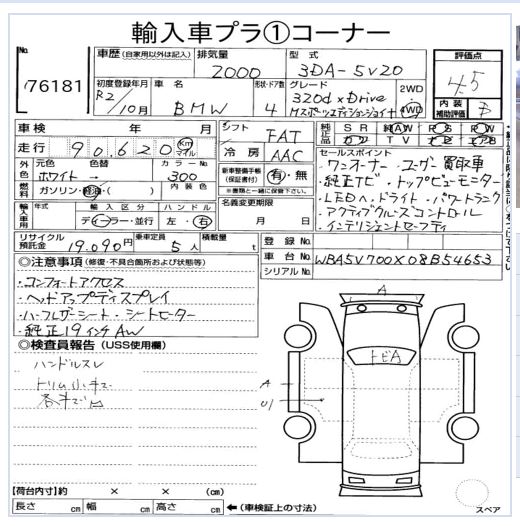 輸入車プラ①コーナー
No.
76181
車歴 (自家用以外は記入)
排気量
2000
型式
3DA-5V20
評価点
4.5
内装補助評価
B
初度登録年月
R2年 10月
車名
BMW
形状・ドア数
4
グレード
320d xDrive
Mスポーツエディションジョイ+
2WD
4WD
車検 年 月
シフト
FAT
純正品
SR 純AW PS PW
カワ TV ナビ エアB
走行
90,620
Km
マイル
冷房
AAC
セールスポイント
・ワンオーナー・ユーザー買取車
・純正ナビ・トップビューモニター
・LEDヘッドライト・パワートランク
・アクティブクルーズコントロール
・インテリジェントセーフティ
外色
元色
ホワイト →
色替
カラーNo.
300
新車整備手帳
(保証書付)
有・無
※書類と一緒に保管下さい。
燃料
ガソリン・軽油・( )
内装色
名義変更期限
月 日
輸入車用
年式
輸入区分
ディーラー・並行
ハンドル
左・右
リサイクル預託金
19,090円
乗車定員
5人
積載量
t
登録No.
車台No.
WBA5V700X08B54653
シリアルNo.
◎注意事項 (修復・不具合箇所および状態等)
・コンフォートアクセス
・ヘッドアップディスプレイ
・ハーフレザーシート・シートヒーター
・純正19インチAW
◎検査員報告 (USS使用欄)
ハンドルスレ
トリム小キズ
各キズ凹
A
トビA
A
U1
【荷台内寸】約 × × (cm)
長さ cm 幅 cm 高さ cm ←(車検証上の寸法)
スペア